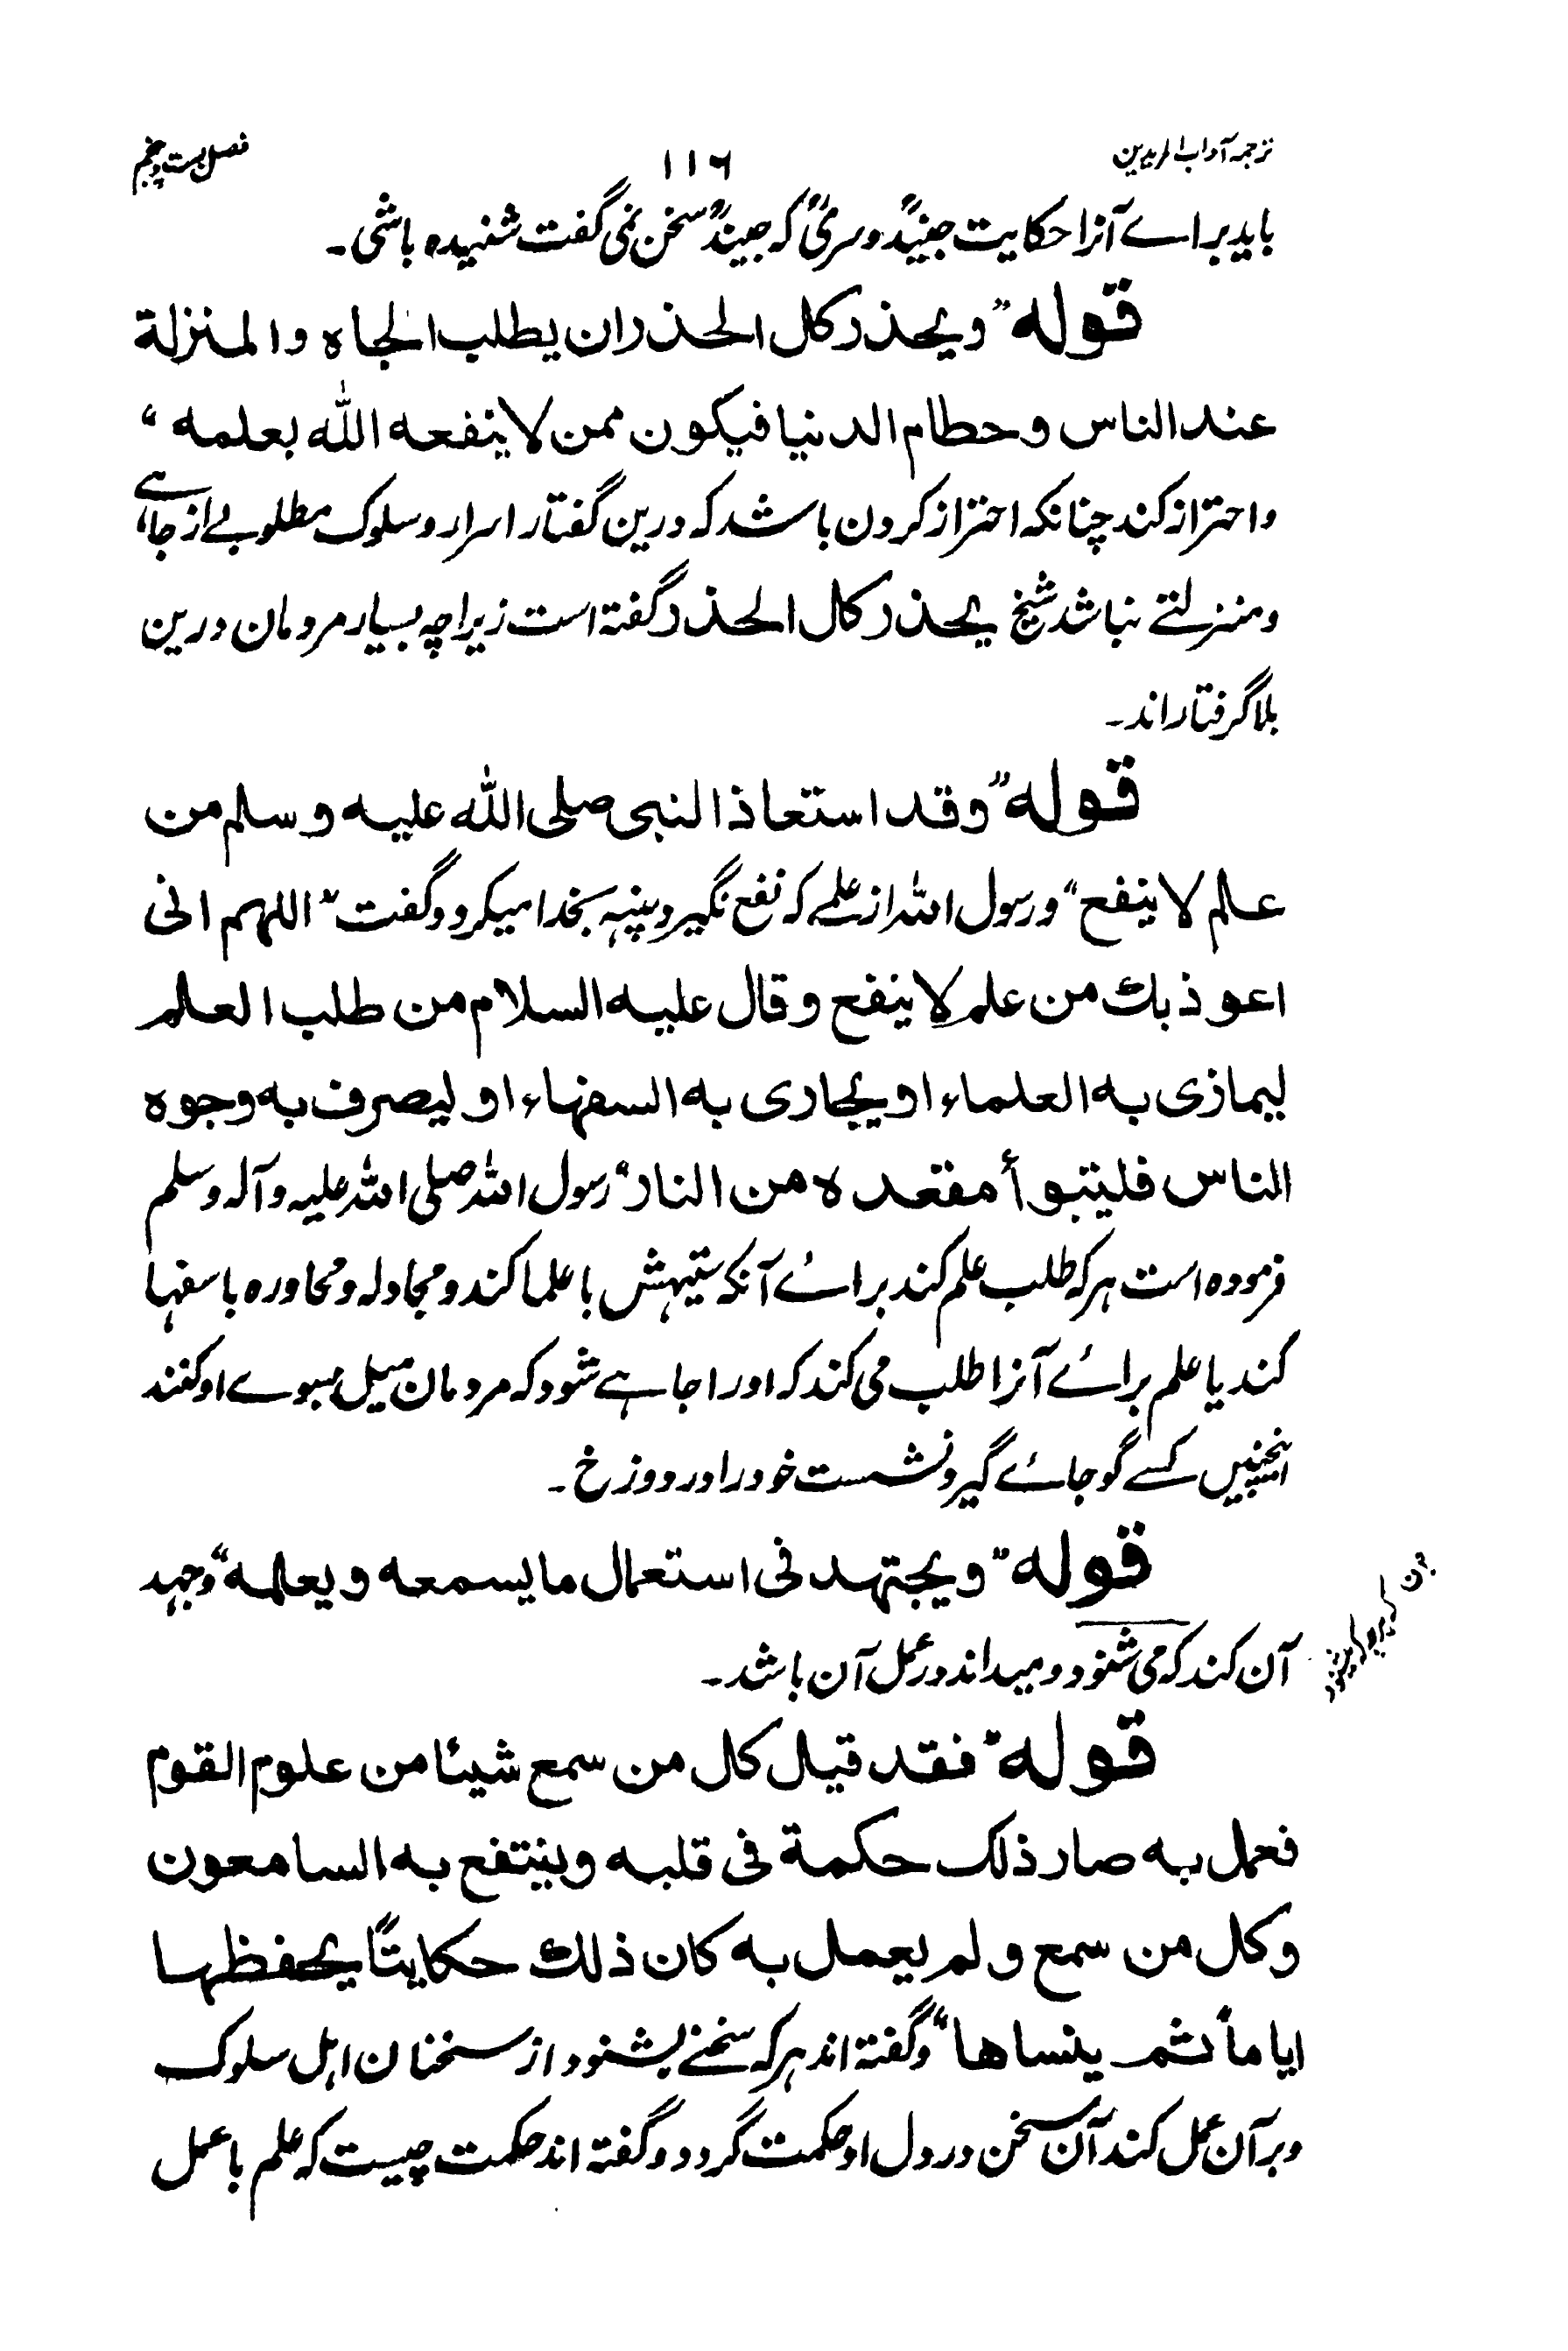 ترجمہ آداب المریدین ۱۱۶ فصل بست و پنجم
باید براے آنرا حکایت جنیدؒ و سریؒ کہ جنیدؒ سخن نمی گفت شنیده باشی۔
قوله "ویحذر کل الحذر ان یطلب الجاه والمنزلة
عند الناس وحطام الدنیا فیکون ممن لا ینفعه الله بعلمه"
و احتراز کند چنانکہ احتراز کردن باشد کہ درین گفتار اسرار و سلوک مطلوبے از جاہے
و منزلتے نباشد شیخ یحذر کل الحذر گفتہ است زیراچہ بسیار مردمان درین
بلا گرفتار اند۔
قوله "وقد استعاذ النبی صلی الله علیه وسلم من
علم لا ینفع" و رسول اللہ از علمے کہ نفع نگیرد پنہ بخدا میکرد و گفت "اللهم انی
اعوذ بك من علم لا ینفع وقال علیه السلام من طلب العلم
لیماذی به العلماء او یجاری به السفهاء او لیصرف به وجوه
الناس فلیتبوأ مقعده من النار" رسول اللہ صلی اللہ علیہ وآلہ وسلم
فرمودہ است ہر کہ طلب علم کند براۓ آنکہ ستیہش با علما کند و مجادلہ و محاورہ با سفہا
کند یا علم براۓ آنرا طلب می کند کہ اورا جاہے شود کہ مردمان میل بسوے او کنند
اینچنیں کسے گو جاۓ گیر و نشست خود را در دوزخ۔
قوله "ویجتهد فی استعمال ما یسمعه ویعلمه" و جہد
آن کند کہ می شنود و میداند در عمل آن باشد۔
قوله "فقد قیل کل من سمع شیئا من علوم القوم
فعمل به صار ذلك حکمة فی قلبه وینتفع به السامعون
وکل من سمع ولم یعمل به کان ذلك حکایتاً یحفظها
ایاماً ثم ینساها" و گفتہ اند ہر کہ سخنے بشنود از سخنان اہل سلوک
و بر آن عمل کند آن سخن در دل او حکمت گردد و گفتہ اند حکمت چیست کہ علم با عمل